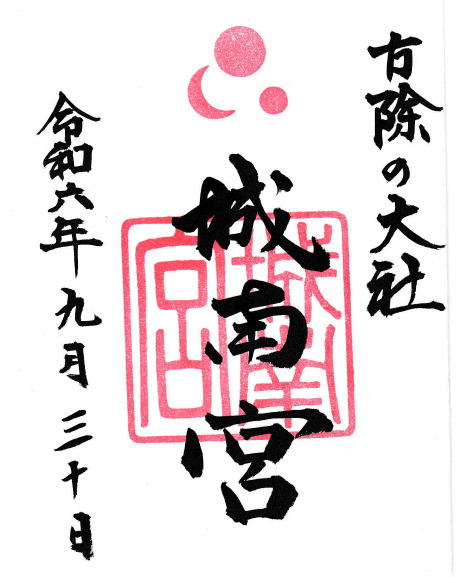 方除の大社
城南宮
城南宮
令和六年九月三十日